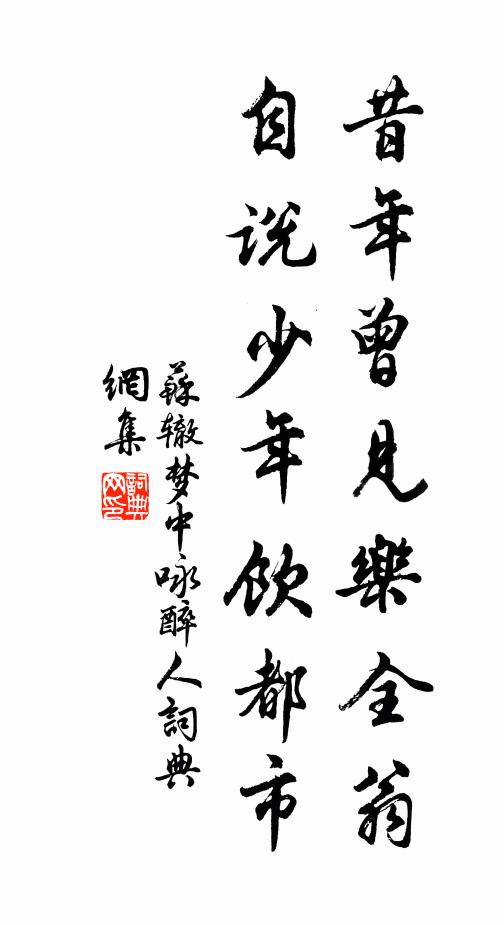 昔年曾見樂全翁
自説少年飲都市
蘇辙梦中咏醉人詞典
網集
詞典
网印